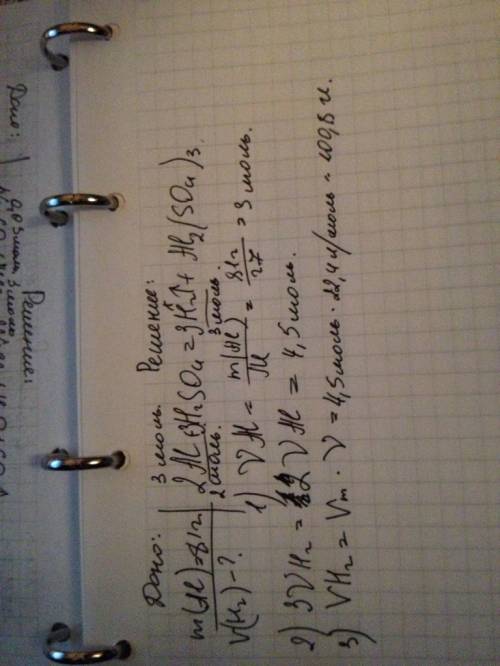 Дано:
m(Al)=81г
V(H₂)-?
Решение:
3 моль
2Al+3H₂SO₄=3H₂↑+Al₂(SO₄)₃.
2 моль 3 моль
1) νAl = m(Al)/M = 81г/27 = 3 моль.
2) 3νH₂ = 2νAl = 4,5 моль.
3) VH₂ = Vm · ν = 4,5 моль · 22,4 л/моль = 100,8 л.
Дано:
Решение: